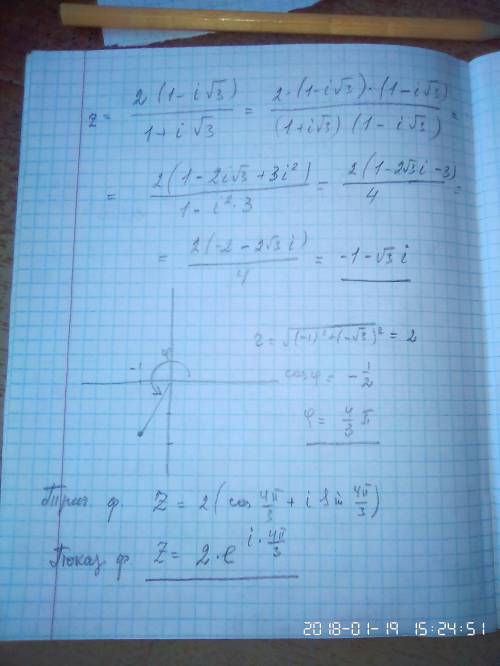 z = 2(1-i√3) / 1+i√3 = 2·(1-i√3)·(1-i√3) / (1+i√3)(1-i√3) =
= 2(1-2i√3+3i²) / 1-i²·3 = 2(1-2√3i-3) / 4 =
= 2(-2-2√3i) / 4 = -1-√3i
r = √(-1)²+(-√3)² = 2
-1
cosφ = -1/2
φ = 4/3 π
Триг. ф. Z = 2(cos 4π/3 + i sin 4π/3)
Показ ф Z = 2·e^(i·4π/3)
2018-01-19 15:24:51